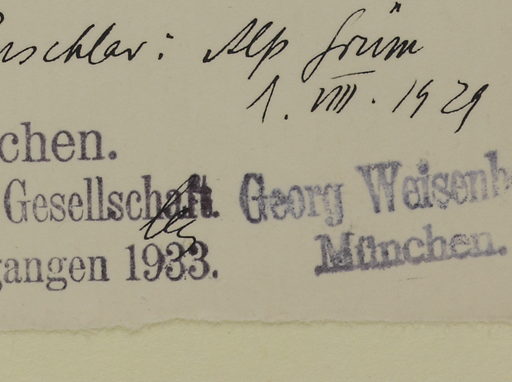 Puschlav: Alp Grüm
1. VIII. 1929
chen.
Gesellschaft.
gangen 1933.
Georg Weisenb
München.